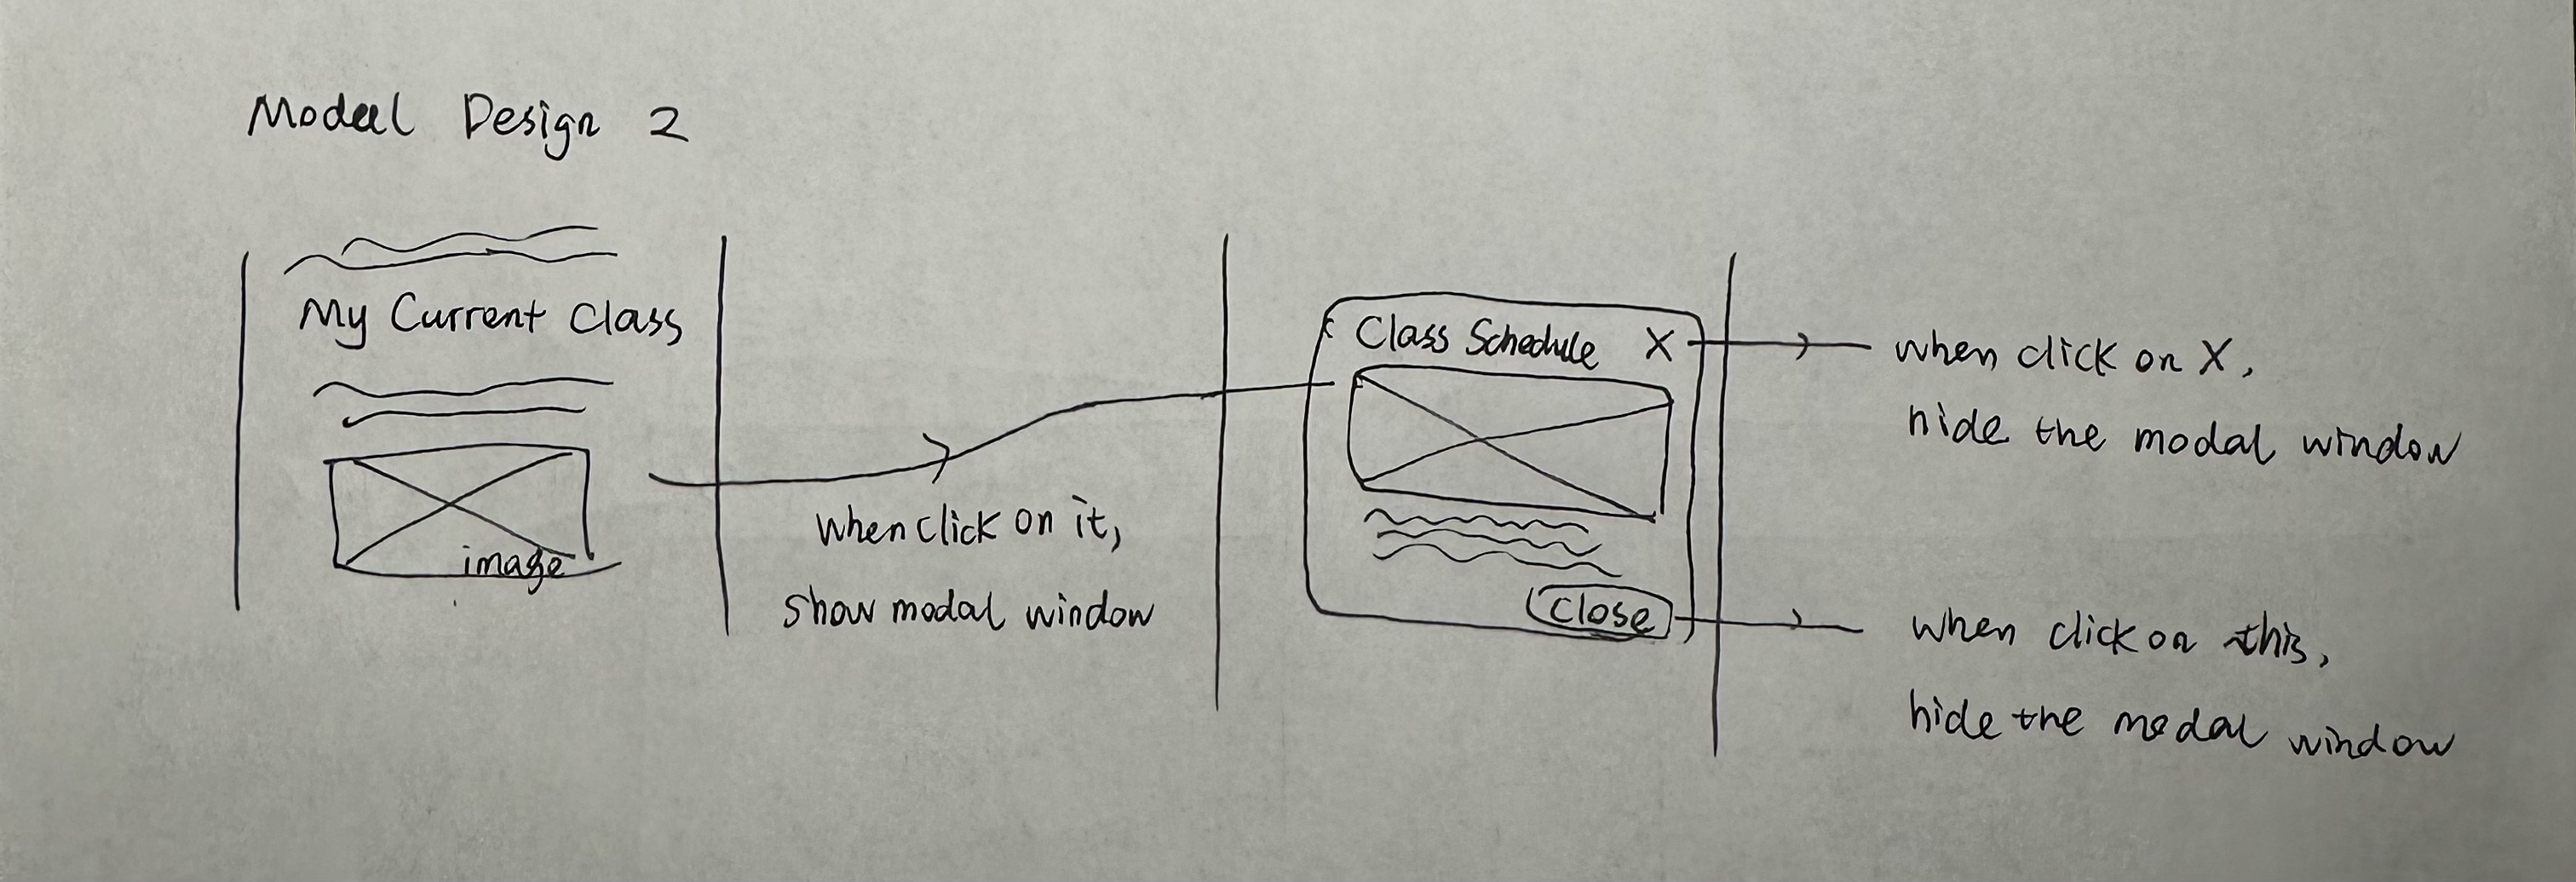 Modal Design 2
My Current Class
image
when click on it,
show modal window
Class Schedule X
Close
when click on X,
hide the modal window
when click on this,
hide the modal window